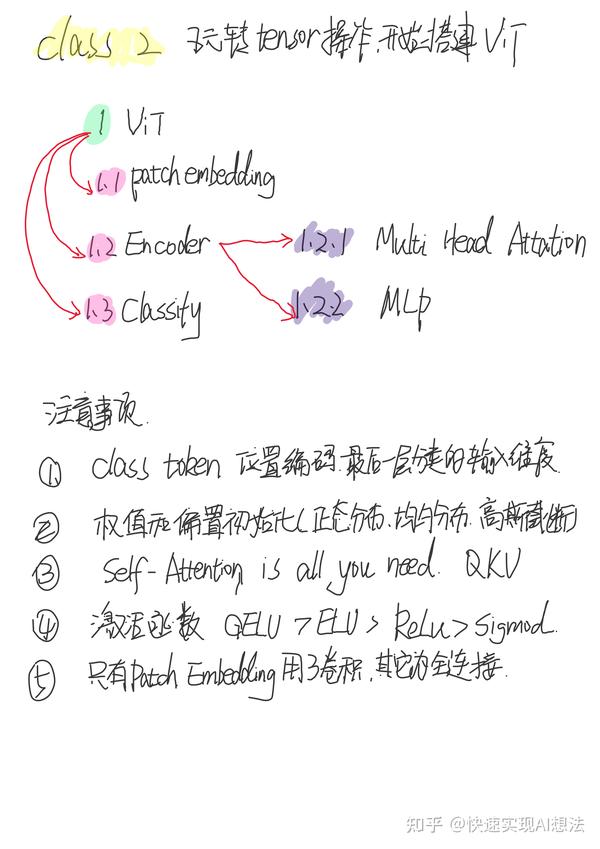 class 2 玩转tensor操作,开始搭建ViT
1 ViT
1.1 patch embedding
1.2 Encoder 1.2.1 Multi Head Attation
1.3 Classify 1.2.2 MLP
注意事项.
① class token 位置编码.最后一层分类的输入维度.
② 权值和偏置初始化(正态分布、均匀分布、高斯截断)
③ Self-Attention is all you need. QKV
④ 激活函数 GELU > ELU > Relu > Sigmod.
⑤ 只有Patch Embedding用了卷积,其它为全连接.
知乎 @快速实现AI想法